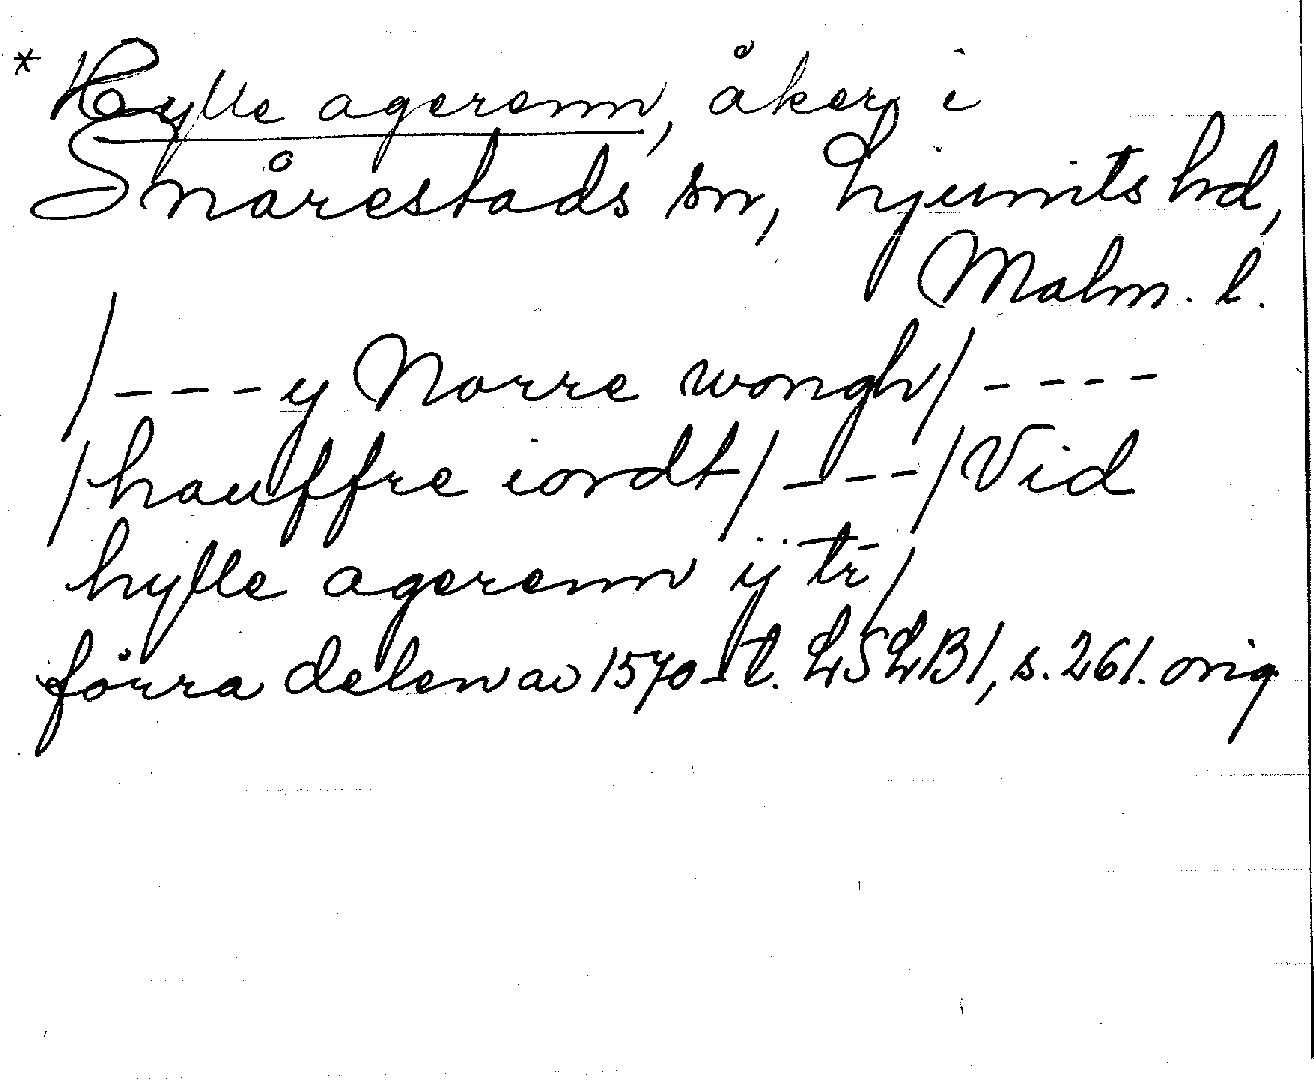 * Hylle agerenn, åker i
Snårestads sn, Ljunits hd,
Malm. l.
/ - - - y Norre wongh/ - - - -
/hauffre iordt/ - - - /Vid
hylle agerenn ij tr/
förra delen av 1570-t. LSLB1, s. 261. orig